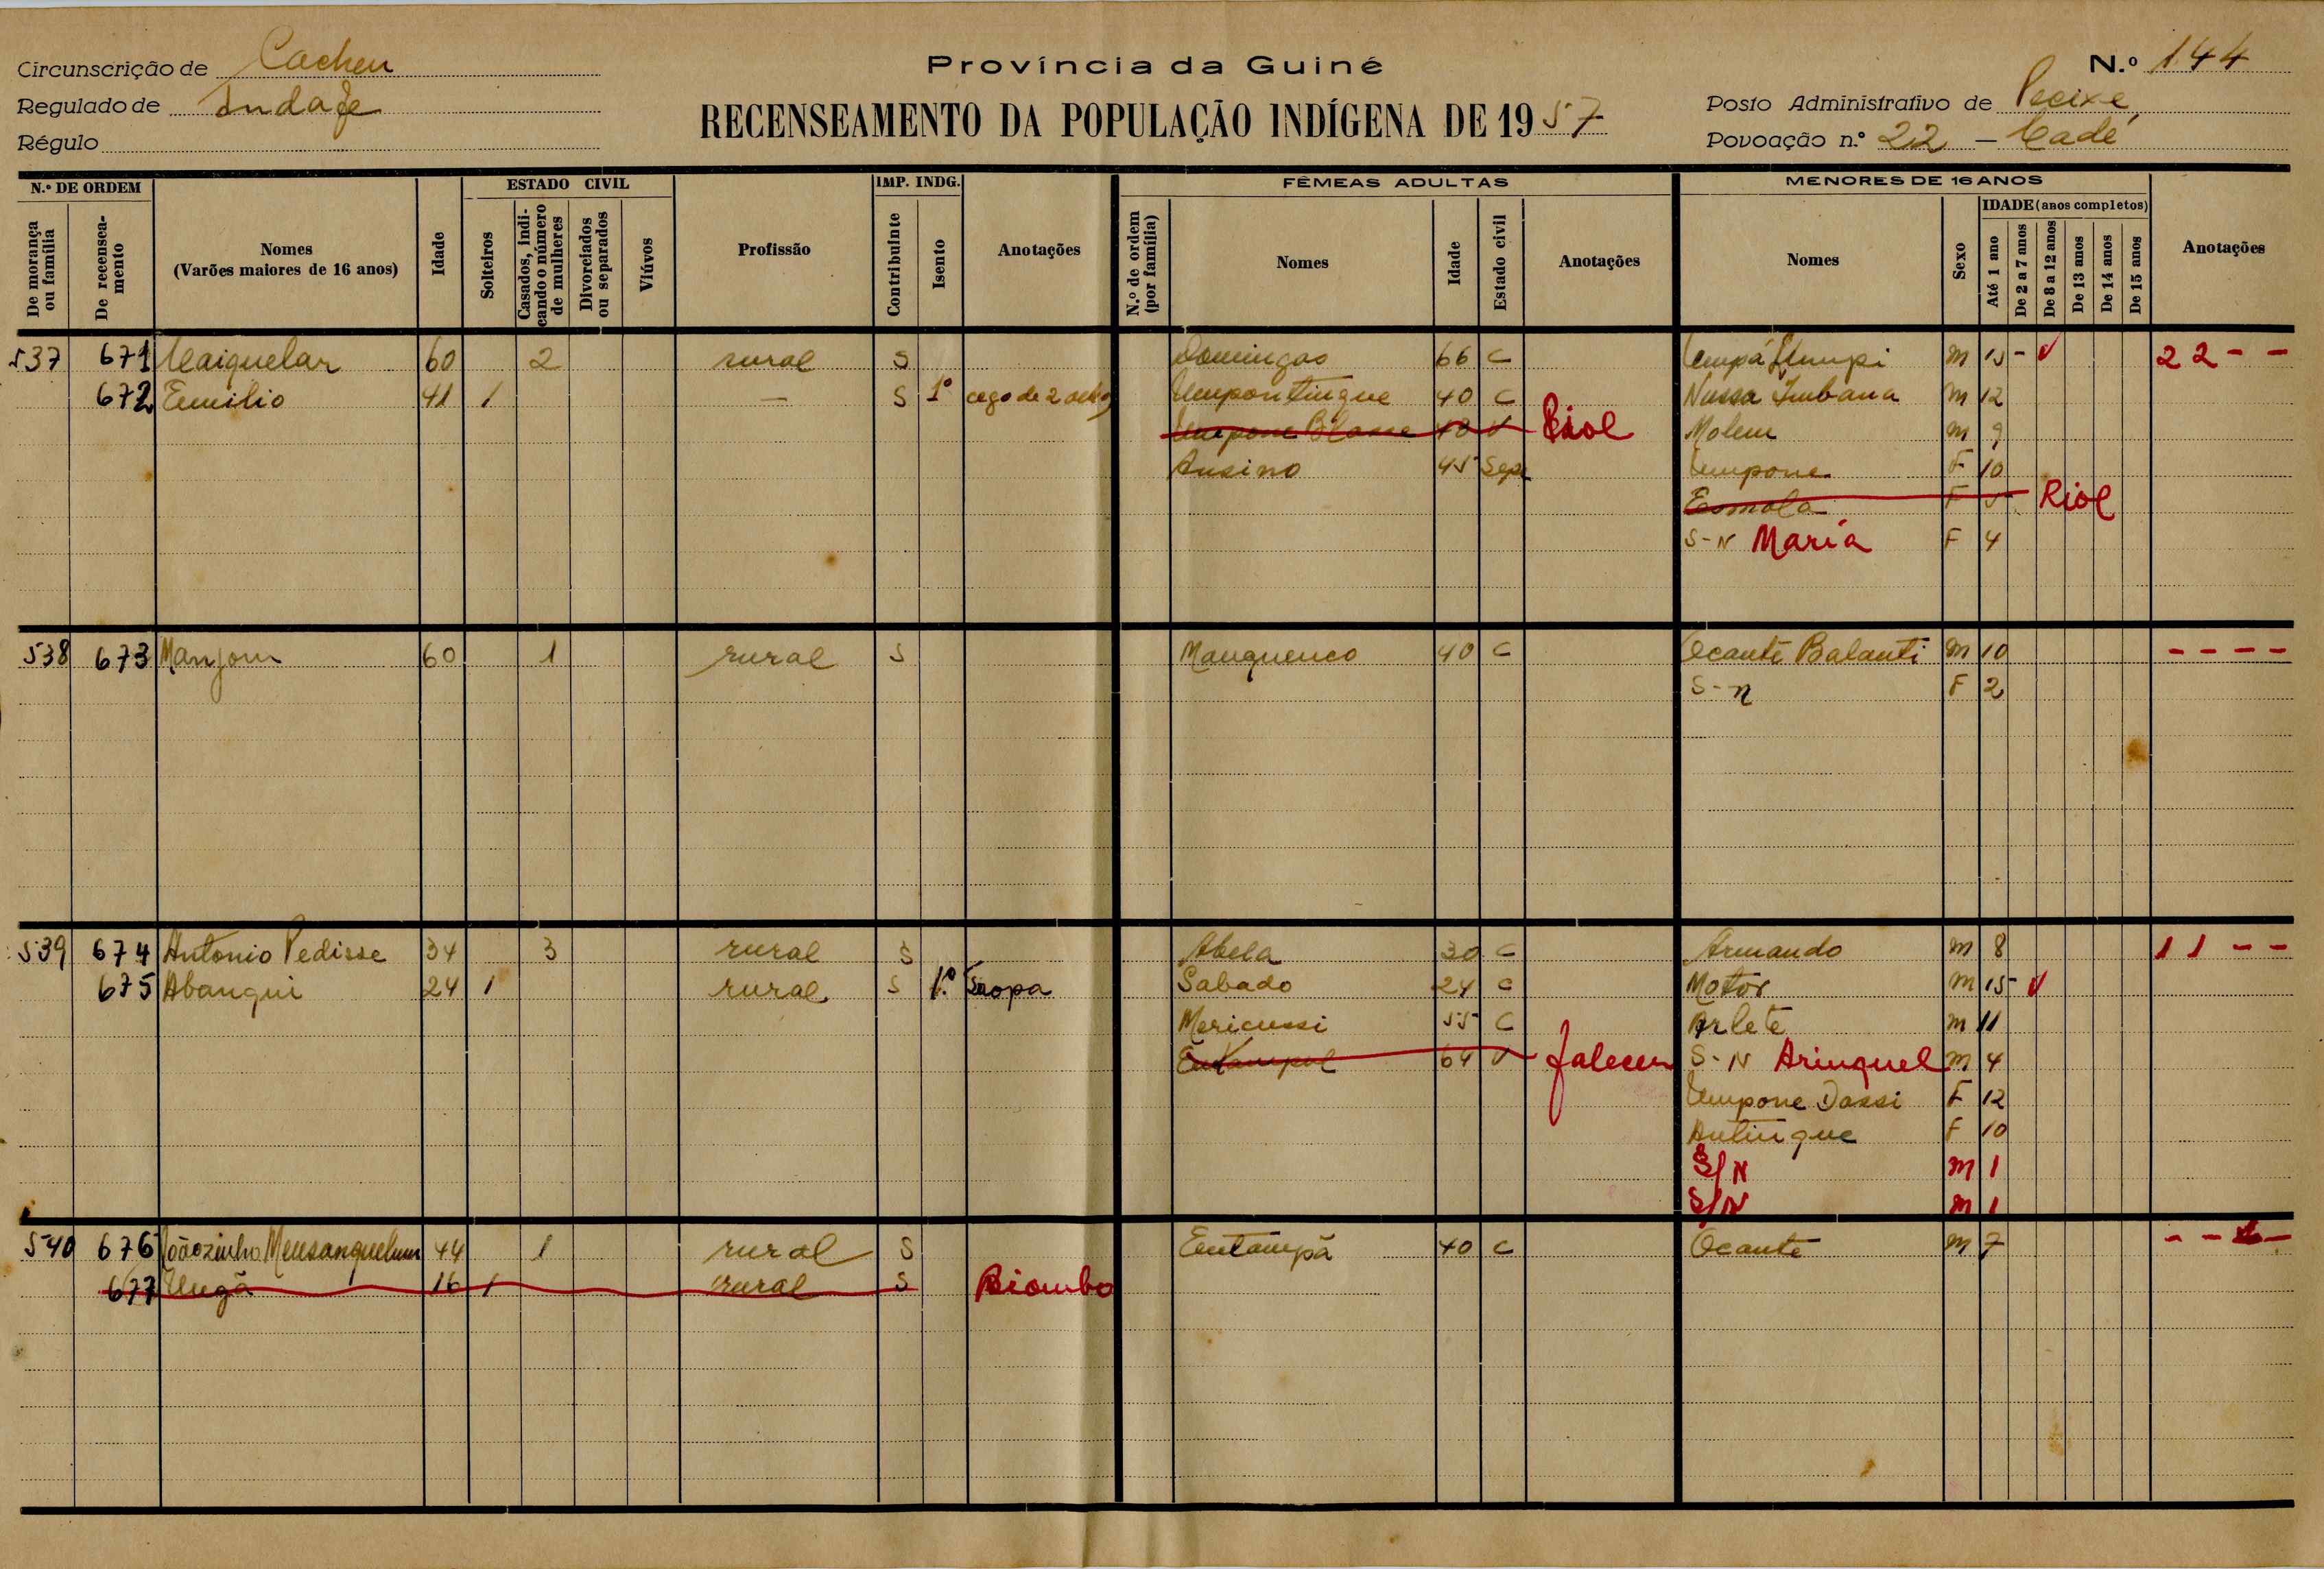 Circunscrição de Cacheu
Regulado de Indafe
Régulo
Província da Guiné
RECENSEAMENTO DA POPULAÇÃO INDÍGENA DE 1957
N.º 144
Posto Administrativo de Pecixe
Povoação n.º 22 - Cadé
N.º DE ORDEM
De morança ou família
De recenseamento
Nomes
(Varões maiores de 16 anos)
Idade
ESTADO CIVIL
Solteiros
Casados, indicando o número de mulheres
Divorciados ou separados
Viúvos
Profissão
IMP. INDG.
Contribuinte
Isento
Anotações
FÊMEAS ADULTAS
N.º de ordem (por família)
Nomes
Idade
Estado civil
Anotações
MENORES DE 16 ANOS
Nomes
Sexo
IDADE (anos completos)
Até 1 ano
De 2 a 7 anos
De 8 a 12 anos
De 13 anos
De 14 anos
De 15 anos
Anotações
537 671 60 2 rural S Domingas 66 C M 15 - v 22 - -
672 Emilio 41 1 — S 1º cego de 2 40 C Nussa Imbana M 12
48 V Riol Molem M 9
Ansino 45 Sep. Umpone F 10
Esmola F 5 Riol
S-N Maria F 4
538 673 Manjom 60 1 rural S Manguenco 40 C Ocante Balanti M 10 - - - -
S-n F 2
539 674 Antonio Pedisse 34 3 rural S Abela 30 C Armando M 8 11 - -
675 Abangui 24 1 rural S 1.º Sabado 24 C Motor M 15 - v
Mericussi 55 C Arlete M 11
64 V faleceu S-N Arinquel M 4
Umpone Dassi F 12
F 10
S/N M 1
S/N M 1
540 676 Joãozinho 44 1 rural S Entampã 40 C Ocante M 7
677 Ungã 16 1 rural S Biombo